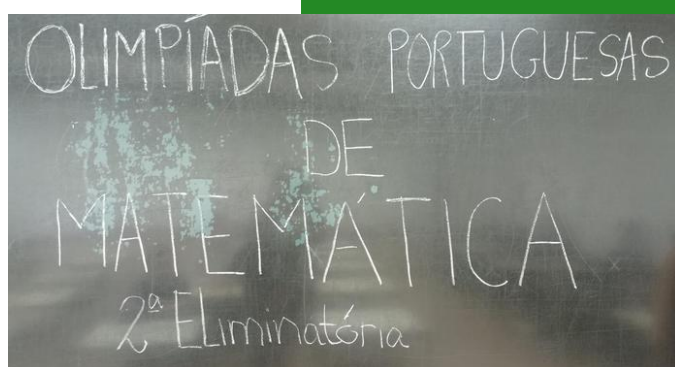 OLIMPÍADAS PORTUGUESAS
DE
MATEMÁTICA
2ª ELiminatória